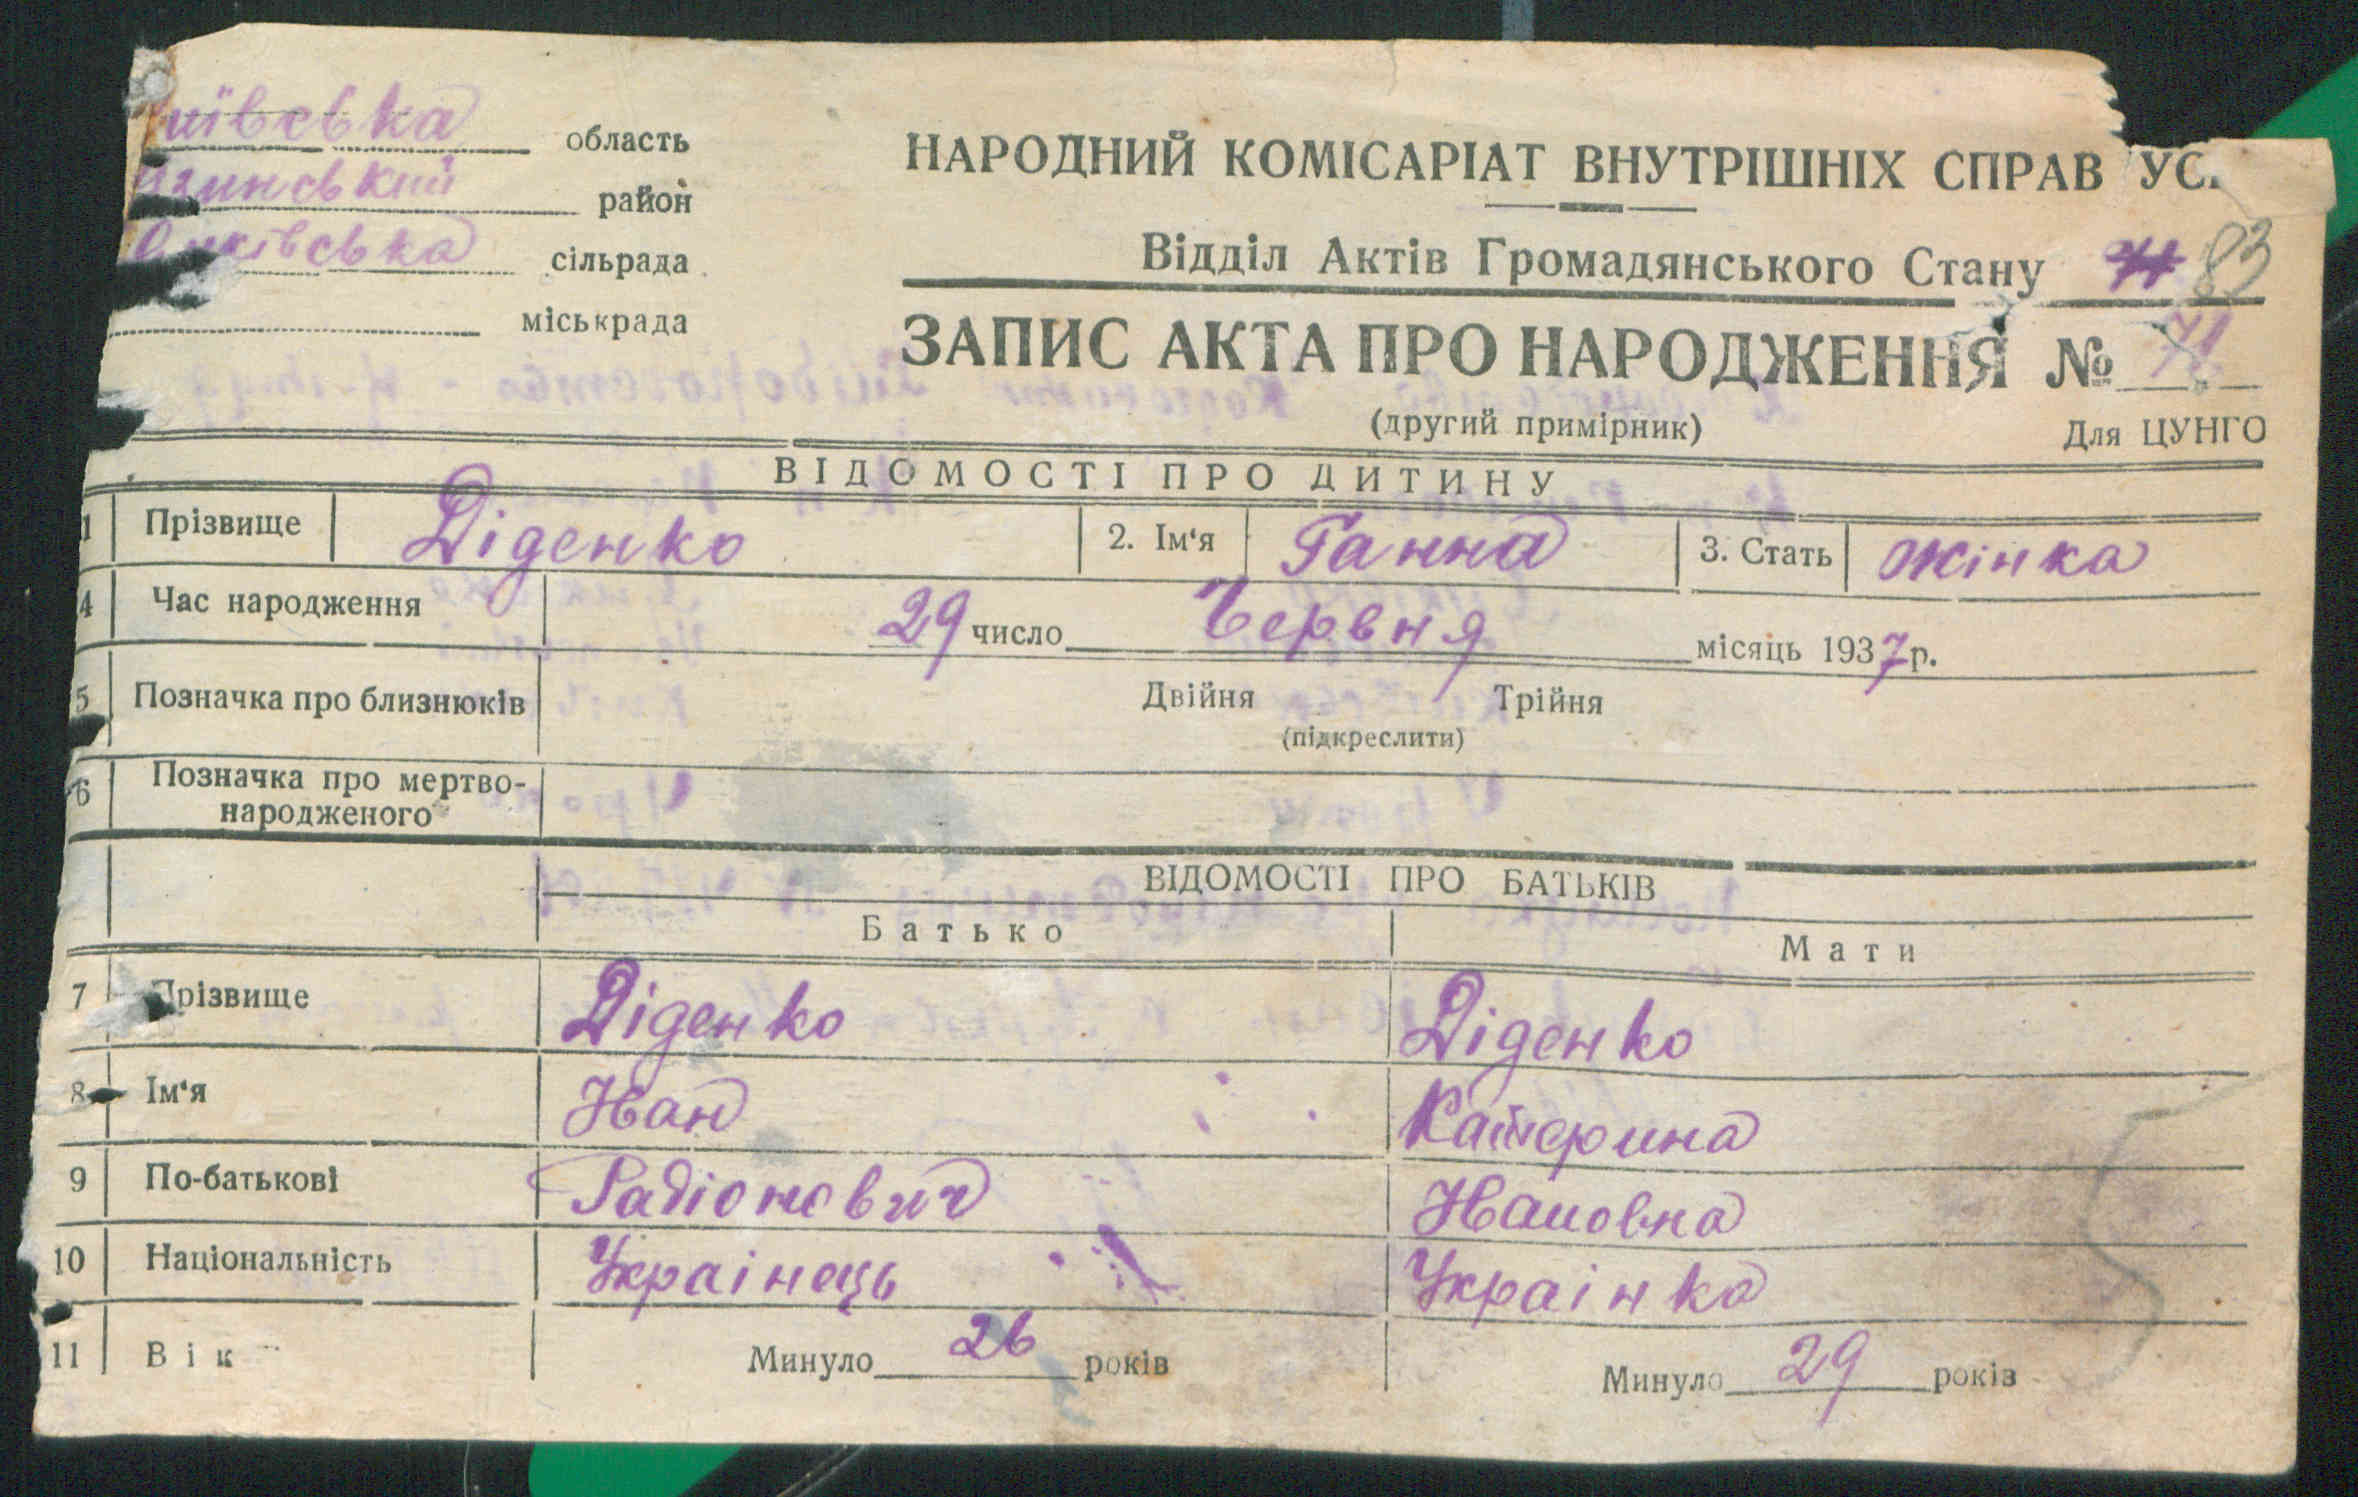 иївська область
район
сільрада
міськрада
НАРОДНИЙ КОМІСАРІАТ ВНУТРІШНІХ СПРАВ УС
Відділ Актів Громадянського Стану 83
ЗАПИС АКТА ПРО НАРОДЖЕННЯ №
(другий примірник) Для ЦУНГО
ВІДОМОСТІ ПРО ДИТИНУ
1 Прізвище Діденко 2. Ім'я Ганна 3. Стать жінка
4 Час народження 29 число Червня місяць 1937 р.
5 Позначка про близнюків Двійня Трійня
(підкреслити)
6 Позначка про мертво-
народженого
ВІДОМОСТІ ПРО БАТЬКІВ
Батько Мати
7 Прізвище Діденко Діденко
8 Ім'я Іван Катерина
9 По-батькові Радіонович Івановна
10 Національність Украінець Украінка
11 Вік Минуло 26 років Минуло 29 років